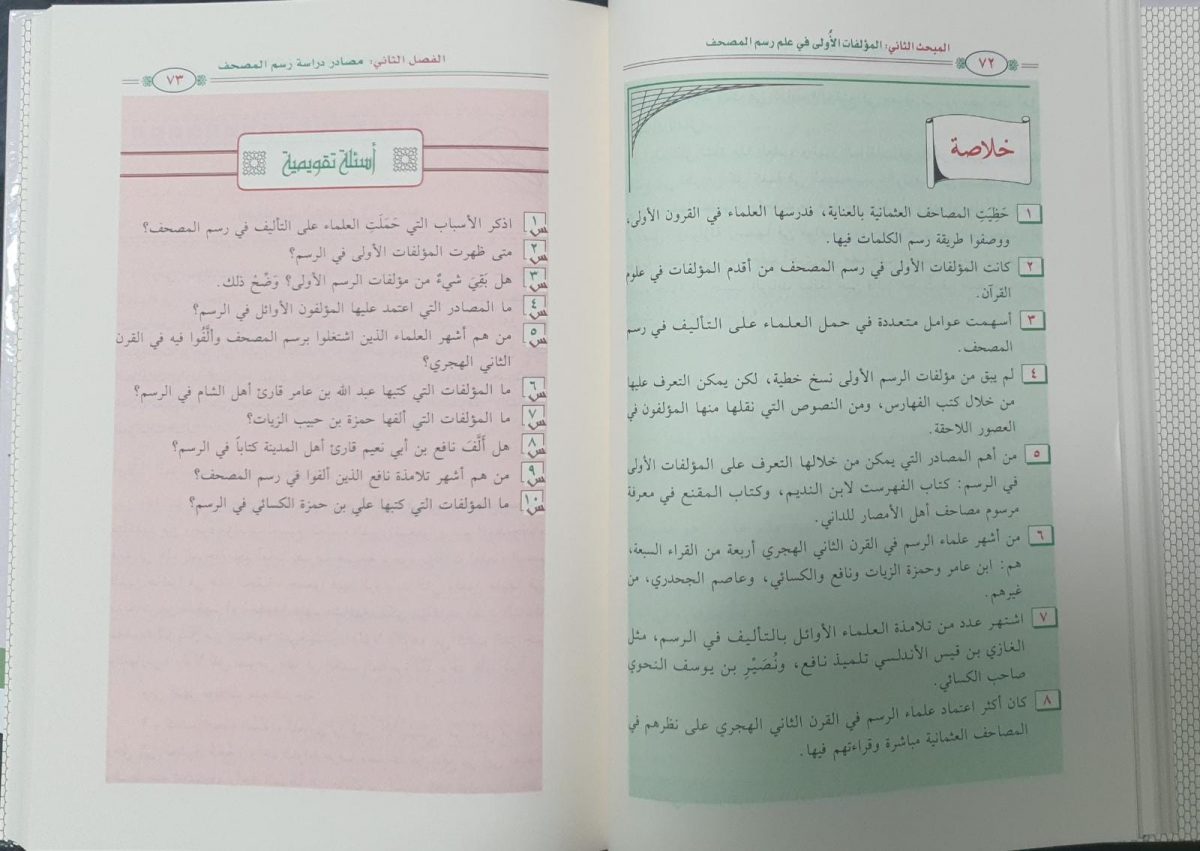 المبحث الثاني: المؤلفات الأُولى في علم رسم المصحف
٧٢
خلاصة
١ حَظِيَتِ المصاحف العثمانية بالعناية، فدرسها العلماء في القرون الأولى،
ووصفوا طريقة رسم الكلمات فيها.
٢ كانت المؤلفات الأولى في رسم المصحف من أقدم المؤلفات في علوم
القرآن.
٣ أسهمت عوامل متعددة في حمل العلماء على التأليف في رسم
المصحف.
٤ لم يبق من مؤلفات الرسم الأولى نسخ خطية، لكن يمكن التعرف عليها
من خلال كتب الفهارس، ومن النصوص التي نقلها منها المؤلفون في
العصور اللاحقة.
٥ من أهم المصادر التي يمكن من خلالها التعرف على المؤلفات الأولى
في الرسم: كتاب الفهرست لابن النديم، وكتاب المقنع في معرفة
مرسوم مصاحف أهل الأمصار للداني.
٦ من أشهر علماء الرسم في القرن الثاني الهجري أربعة من القراء السبعة،
هم: ابن عامر وحمزة الزيات ونافع والكسائي، وعاصم الجحدري، من
غيرهم.
٧ اشتهر عدد من تلامذة العلماء الأوائل بالتأليف في الرسم، مثل
الغازي بن قيس الأندلسي تلميذ نافع، ونُصَيْرِ بن يوسف النحوي
صاحب الكسائي.
٨ كان أكثر اعتماد علماء الرسم في القرن الثاني الهجري على نظرهم في
المصاحف العثمانية مباشرة وقراءتهم فيها.
الفصل الثاني: مصادر دراسة رسم المصحف
٧٣
أسئلة تقويمية
س١ اذكر الأسباب التي حَمَلَتِ العلماء على التأليف في رسم المصحف؟
س٢ متى ظهرت المؤلفات الأولى في الرسم؟
س٣ هل بَقِيَ شيءٌ من مؤلفات الرسم الأولى؟ وَضِّحْ ذلك.
س٤ ما المصادر التي اعتمد عليها المؤلفون الأوائل في الرسم؟
س٥ من هم أشهر العلماء الذين اشتغلوا برسم المصحف وألَّفُوا فيه في القرن
الثاني الهجري؟
س٦ ما المؤلفات التي كتبها عبد الله بن عامر قارئ أهل الشام في الرسم؟
س٧ ما المؤلفات التي ألفها حمزة بن حبيب الزيات؟
س٨ هل أَلَّفَ نافع بن أبي نعيم قارئ أهل المدينة كتاباً في الرسم؟
س٩ من هم أشهر تلامذة نافع الذين ألفوا في رسم المصحف؟
س١٠ ما المؤلفات التي كتبها علي بن حمزة الكسائي في الرسم؟